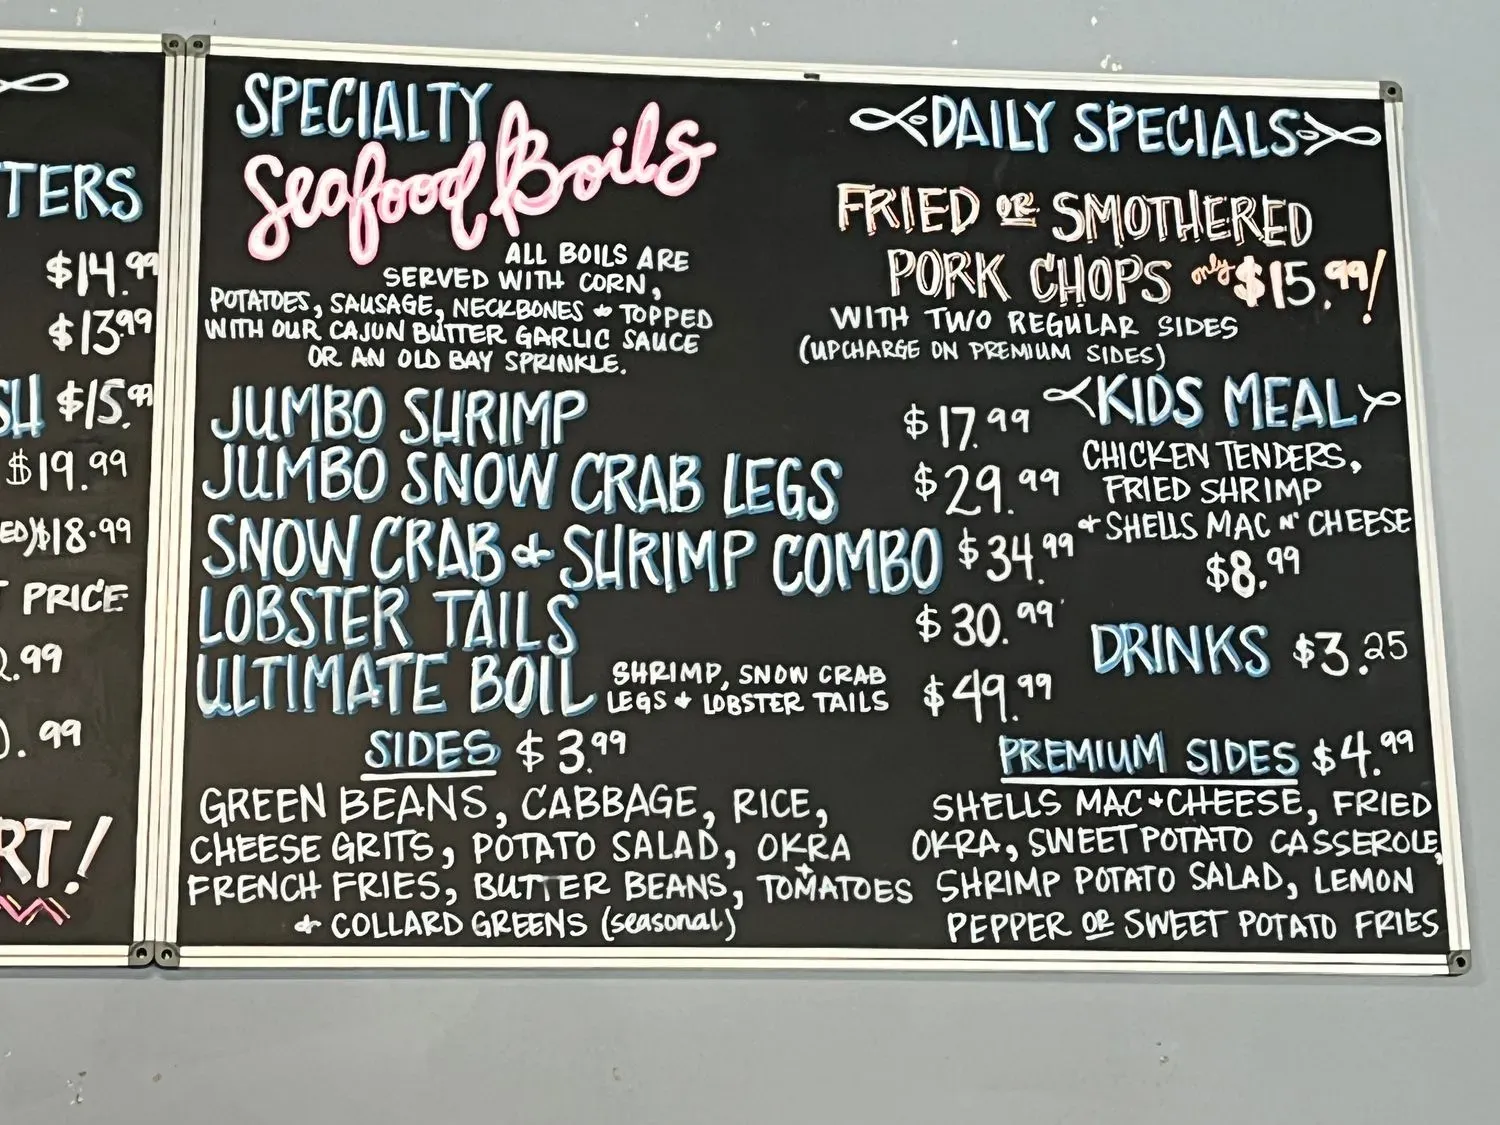 TTERS
$14.99
$13.99
SH $15.99
$19.99
ED) $18.99
T PRICE
.99
.99
RT!
SPECIALTY
Seafood Boils
ALL BOILS ARE
SERVED WITH CORN,
POTATOES, SAUSAGE, NECKBONES & TOPPED
WITH OUR CAJUN BUTTER GARLIC SAUCE
OR AN OLD BAY SPRINKLE.
JUMBO SHRIMP $17.99
JUMBO SNOW CRAB LEGS $29.99
SNOW CRAB & SHRIMP COMBO $34.99
LOBSTER TAILS $30.99
ULTIMATE BOIL SHRIMP, SNOW CRAB
LEGS & LOBSTER TAILS $49.99
SIDES $3.99
GREEN BEANS, CABBAGE, RICE,
CHEESE GRITS, POTATO SALAD, OKRA
FRENCH FRIES, BUTTER BEANS, + TOMATOES
& COLLARD GREENS (seasonal)
DAILY SPECIALS
FRIED OR SMOTHERED
PORK CHOPS only $15.99!
WITH TWO REGULAR SIDES
(UPCHARGE ON PREMIUM SIDES)
KIDS MEAL
CHICKEN TENDERS,
FRIED SHRIMP
& SHELLS MAC N' CHEESE
$8.99
DRINKS $3.25
PREMIUM SIDES $4.99
SHELLS MAC + CHEESE, FRIED
OKRA, SWEET POTATO CASSEROLE,
SHRIMP POTATO SALAD, LEMON
PEPPER OR SWEET POTATO FRIES